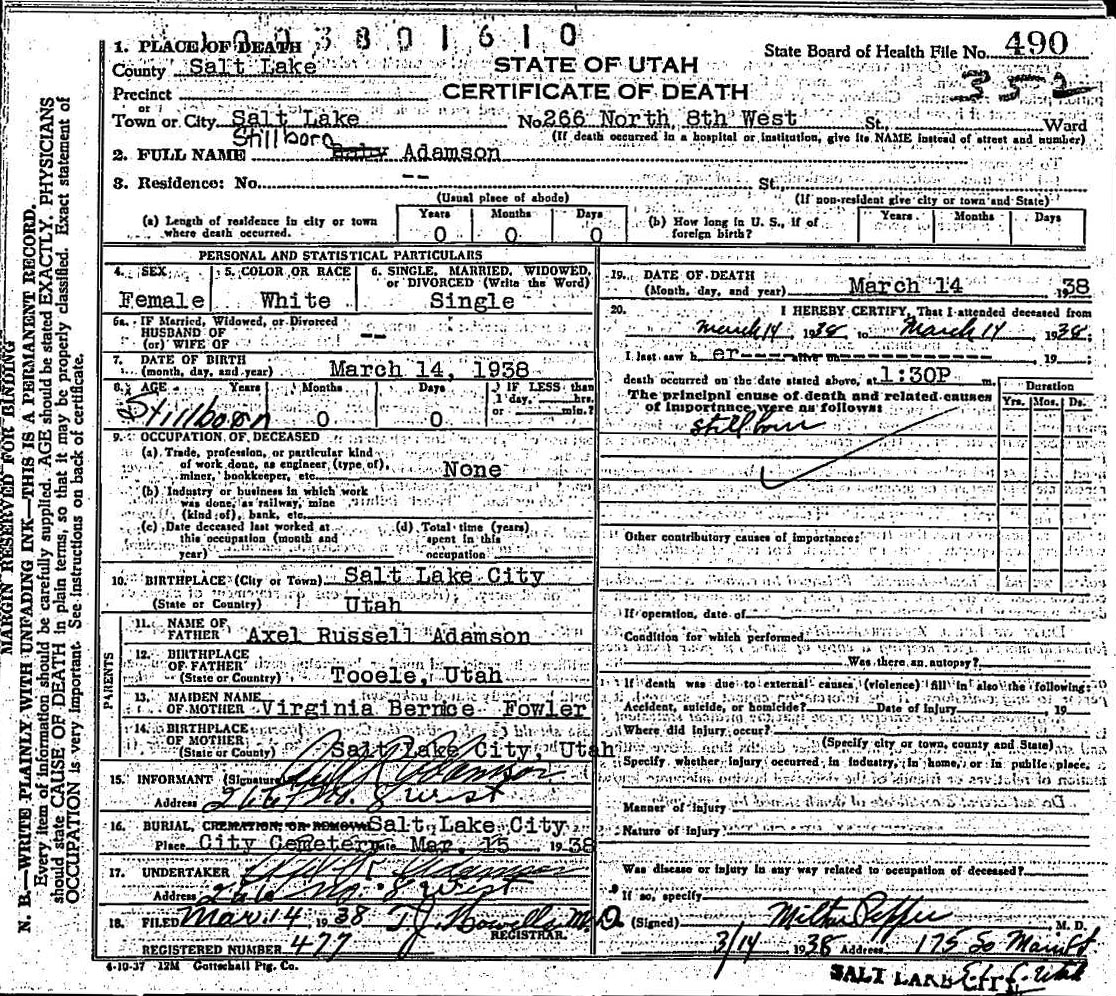 1003801610
State Board of Health File No. 490
352
STATE OF UTAH
CERTIFICATE OF DEATH
1. PLACE OF DEATH
County Salt Lake
Precinct
or
Town or City Salt Lake No. 266 North 8th West St. Ward
(If death occurred in a hospital or institution, give its NAME instead of street and number)
Stillborn
2. FULL NAME Baby Adamson
3. Residence: No. -- St.
(Usual place of abode) (If non-resident give city or town and State)
(a) Length of residence in city or town where death occurred. Years 0 Months 0 Days 0
(b) How long in U. S., if of foreign birth? Years Months Days
PERSONAL AND STATISTICAL PARTICULARS
4. SEX Female
5. COLOR OR RACE White
6. SINGLE, MARRIED, WIDOWED, or DIVORCED (Write the Word) Single
6a. If Married, Widowed, or Divorced
HUSBAND OF
(or) WIFE OF --
7. DATE OF BIRTH
(month, day, and year) March 14, 1938
8. AGE Years Months Days If LESS than
1 day, hrs.
or min.?
Stillborn 0 0
9. OCCUPATION OF DECEASED
(a) Trade, profession, or particular kind
of work done, as engineer (type of),
miner, bookkeeper, etc. None
(b) Industry or business in which work
was done, as railway, mine
(kind of), bank, etc.
(c) Date deceased last worked at
this occupation (month and
year)
(d) Total time (years)
spent in this
occupation
10. BIRTHPLACE (City or Town) Salt Lake City
(State or Country) Utah
PARENTS
11. NAME OF
FATHER Axel Russell Adamson
12. BIRTHPLACE
OF FATHER
(State or Country) Tooele, Utah
13. MAIDEN NAME
OF MOTHER Virginia Bernice Fowler
14. BIRTHPLACE
OF MOTHER
(State or County) Salt Lake City, Utah
15. INFORMANT (Signature) Adamson
Address 266 No. 8 West
16. BURIAL, CREMATION, OR REMOVAL Salt Lake City
Place City Cemetery Date Mar. 15 1938
17. UNDERTAKER Adamson
Address 266 No. 8 West
18. FILED Mar 14 1938 T.J. Howells M.D.
REGISTRAR.
REGISTERED NUMBER 477
4-10-37 12M Gottschall Ptg. Co.
19. DATE OF DEATH
(Month, day, and year) March 14 1938
20. I HEREBY CERTIFY, That I attended deceased from
March 14 1938, to March 14 1938.
I last saw her alive on 19
death occurred on the date stated above, at 1:30P m.
The principal cause of death and related causes
of importance were as follows:
Duration
Yrs. Mos. Ds.
stillborn
Other contributory causes of importance:
If operation, date of
Condition for which performed
Was there an autopsy?
If death was due to external causes (violence) fill in also the following:
Accident, suicide, or homicide? Date of injury 19
Where did injury occur?
(Specify city or town, county and State)
Specify whether injury occurred in industry, in home, or in public place.
Manner of injury
Nature of injury
Was disease or injury in any way related to occupation of deceased?
If so, specify
(Signed) Milton Pepper M. D.
3/14 1938 Address 175 So Main St
SALT LAKE CITY
MARGIN RESERVED FOR BINDING
N. B.—WRITE PLAINLY WITH UNFADING INK—THIS IS A PERMANENT RECORD.
Every item of information should be carefully supplied. AGE should be stated EXACTLY. PHYSICIANS
should state CAUSE OF DEATH in plain terms, so that it may be properly classified. Exact statement of
OCCUPATION is very important. See instructions on back of certificate.